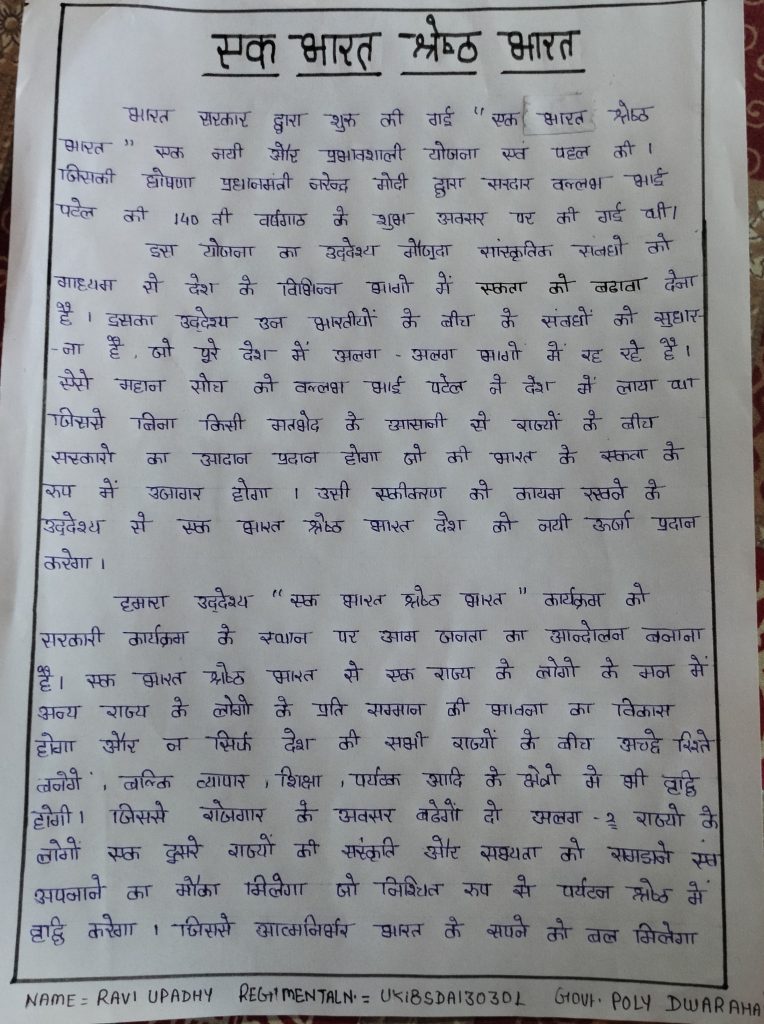 एक भारत श्रेष्ठ भारत
भारत सरकार द्वारा शुरु की गई "एक भारत श्रेष्ठ
भारत" एक नयी और प्रभावशाली योजना एवं पहल की ।
जिसकी घोषणा प्रधानमंत्री नरेन्द्र मोदी द्वारा सरदार वल्लभ भाई
पटेल की 140 वी वर्षगाठ के शुभ अवसर पर की गई थी।
इस योजना का उद्देश्य मौजुदा सांस्कृतिक संबधो को
माध्यम से देश के विभिन्न भागो में एकता को बढावा देना
है । इसका उद्देश्य उन भारतीयों के बीच के संबधों को सुधार-
-ना है, जो पुरे देश में अलग - अलग भागों में रह रहे है ।
ऐसे महान सोच को वल्लभ भाई पटेल ने देश में लाया था
जिससे बिना किसी मतभेद के आसानी से राज्यों के बीच
संस्कारो का आदान प्रदान होगा जो की भारत के एकता के
रुप में उजागर होगा । उसी एकीकरण को कायम रखने के
उद्देश्य से एक भारत श्रेष्ठ भारत देश को नयी ऊर्जा प्रदान
करेगा ।
हमारा उद्देश्य "एक भारत श्रेष्ठ भारत" कार्यक्रम को
सरकारी कार्यक्रम के स्थान पर आम जनता का आन्दोलन बनाना
है । एक भारत श्रेष्ठ भारत से एक राज्य के लोगो के मन में
अन्य राज्य के लोगो के प्रति सम्मान की भावना का विकास
होगा और न सिर्फ देश की सभी राज्यों के बीच अच्छे रिश्ते
बनेगें, बल्कि व्यापार, शिक्षा, पर्यटक आदि के क्षेत्रो मे भी वृद्धि
होगी। जिससे रोजगार के अवसर बढेगों दो अलग -२ राज्यो के
लोगों एक दुसरे राज्यों की संस्कृति और सभ्यता को समझने एवं
अपनाने का मौका मिलेगा जो निश्चित रुप से पर्यटन श्रेष्ठ में
वृद्धि करेगा । जिससे आत्मनिर्भर भारत के सपने को बल मिलेगा
NAME = RAVI UPADHY REGIMENTAL N. = UK18SDA130302 GOVT. POLY DWARAHA